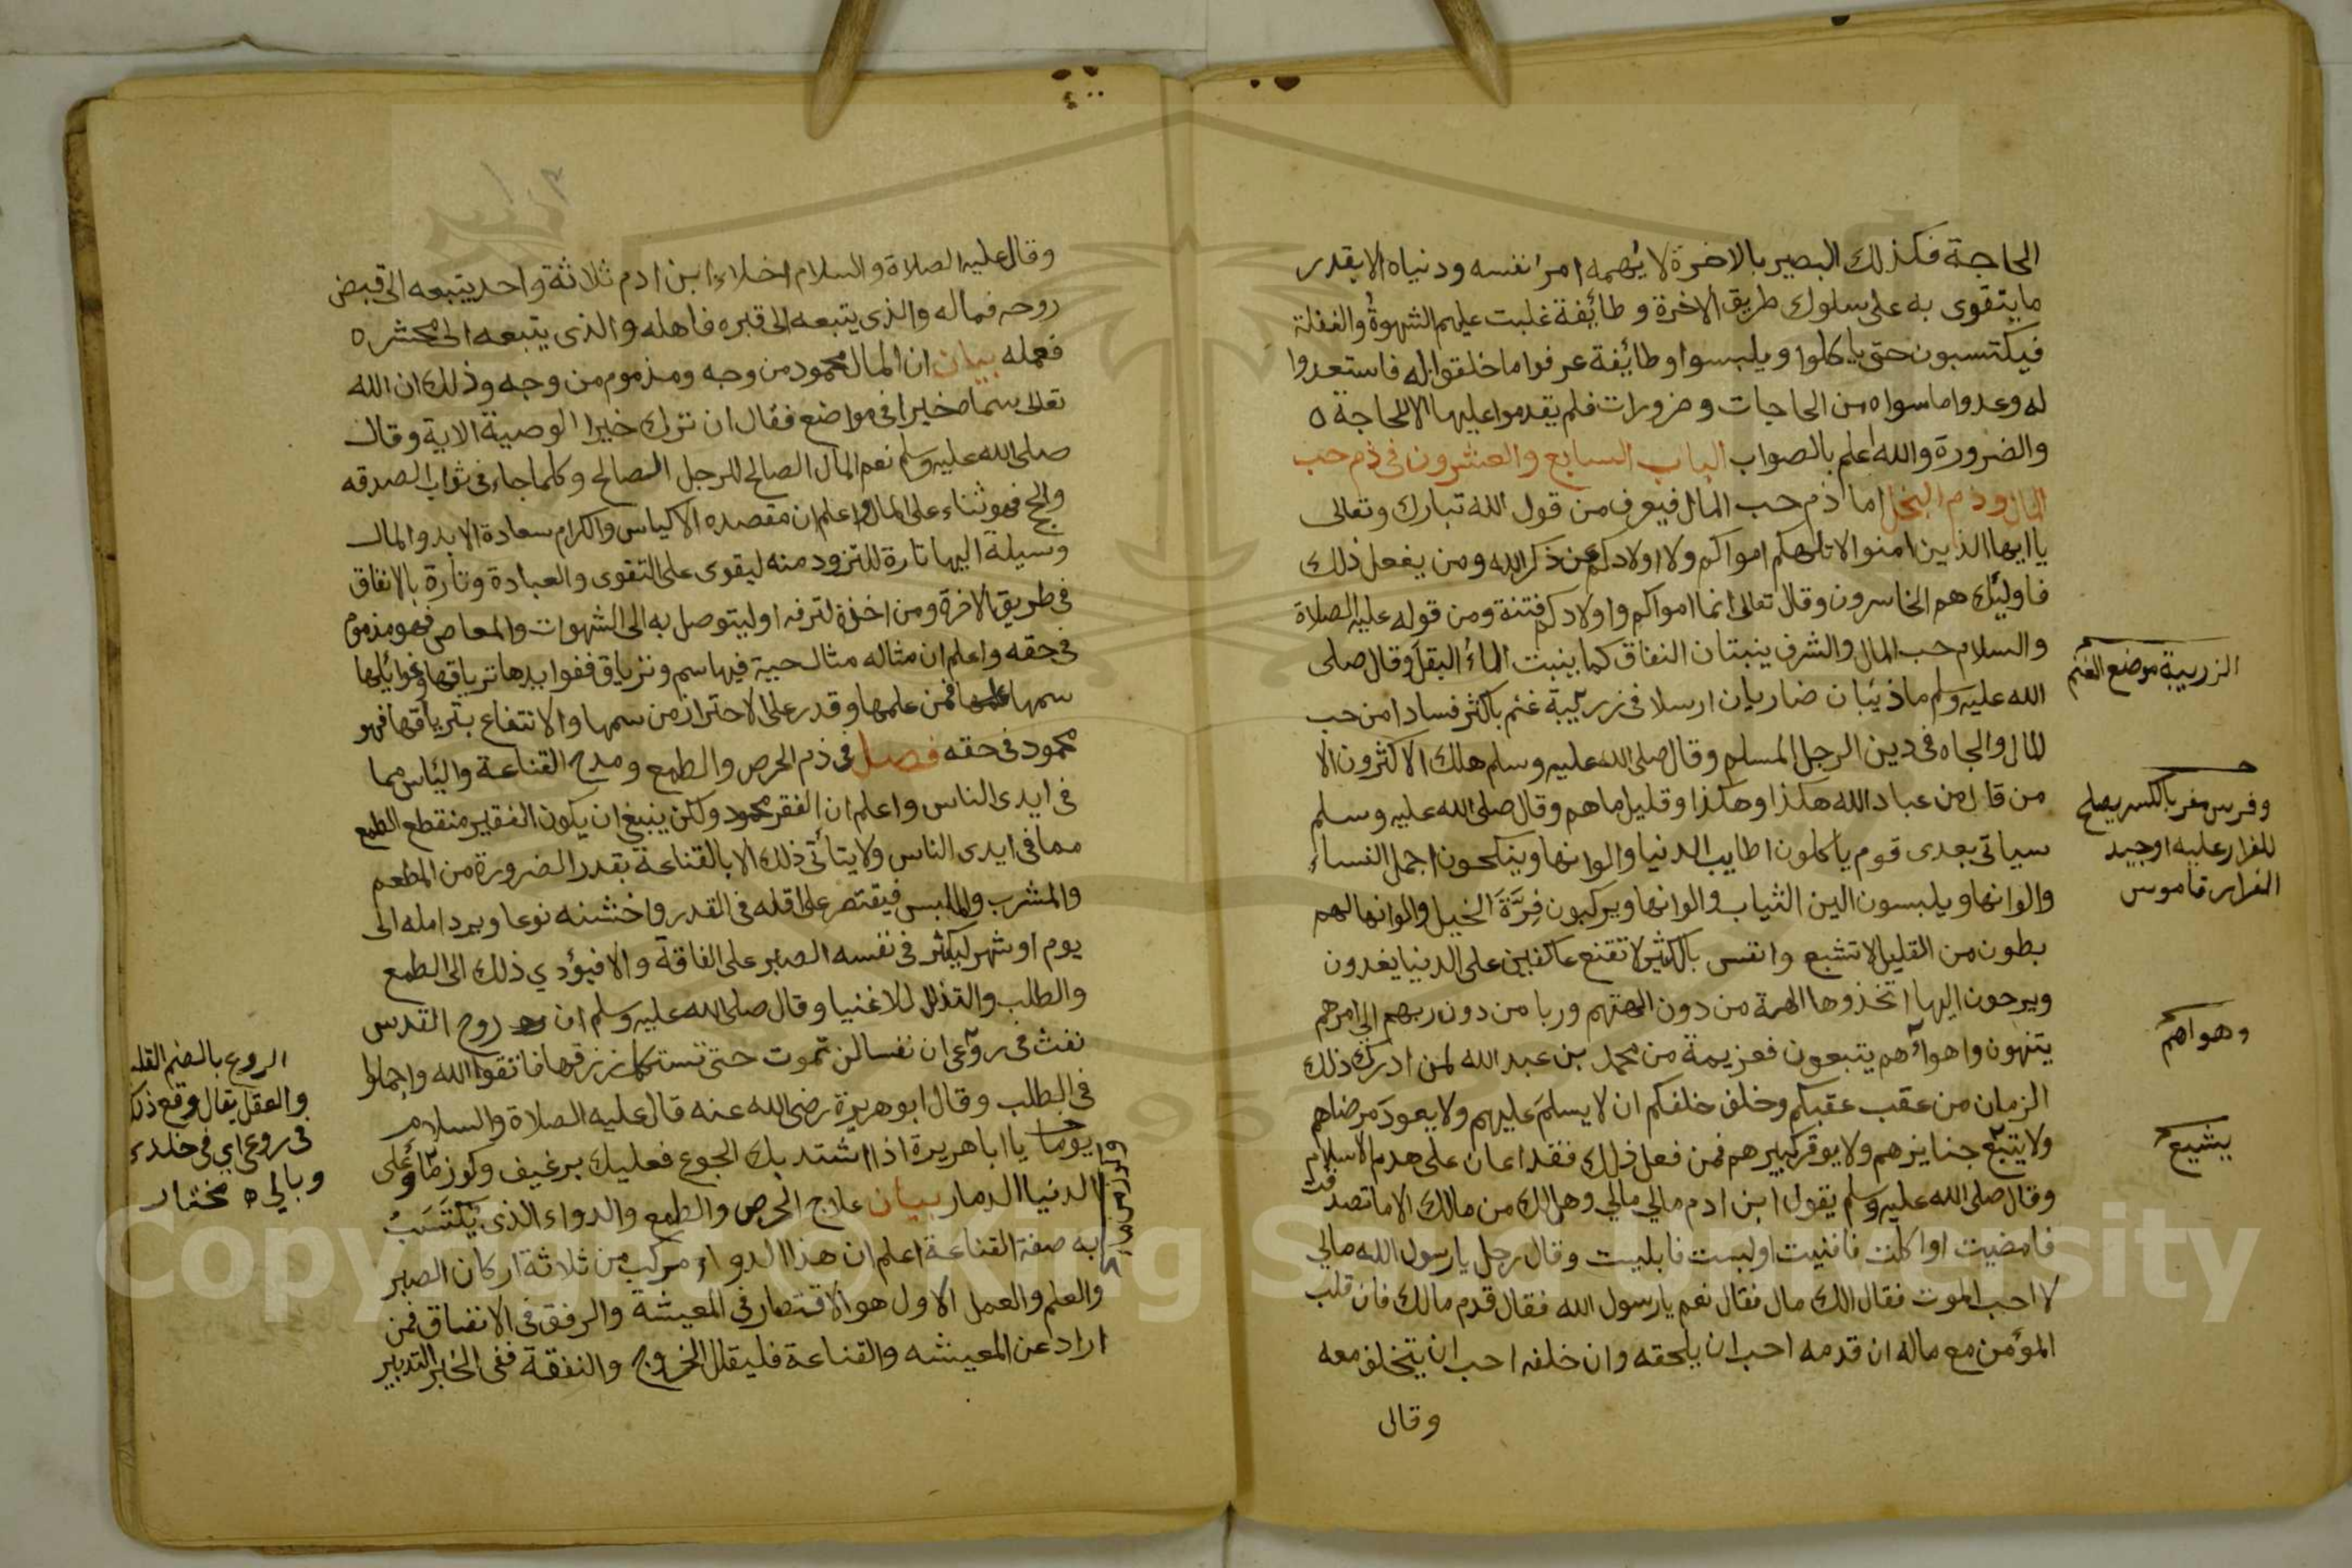 الحاجة فكذلك البصير بالاخرة لا يهمه امر نفسه ودنياه الا بقدر
ما يتقوى به على سلوك طريق الاخرة وطائفة غلبت عليهم الشهوة والغفلة
فيكتسبون حتى ياكلوا ويلبسوا وطائفة عرفوا ما خلقوا له فاستعدوا
له وعدوا ما سواه من الحاجات وضرورات فلم يقدموا عليها الا للحاجة ه
والضرورة والله اعلم بالصواب الباب السابع والعشرون في ذم حب
المال وذم البخل اما ذم حب المال فيعرف من قول الله تبارك وتعالى
يا ايها الذين امنوا لا تلهكم اموالكم ولا اولادكم عن ذكر الله ومن يفعل ذلك
فاولئك هم الخاسرون وقال تعالى انما اموالكم واولادكم فتنة ومن قوله عليه الصلاة
والسلام حب المال والشرف ينبتان النفاق كما ينبت الماء البقل وقال صلى
الله عليه وسلم ما ذئبان ضاريان ارسلا في زريبة غنم باكثر فسادا من حب
المال والجاه في دين الرجل المسلم وقال صلى الله عليه وسلم هلك الاكثرون الا
من قال من عباد الله هكذا وهكذا وقليل ما هم وقال صلى الله عليه وسلم
سياتي بعدى قوم ياكلون اطايب الدنيا والوانها وينكحون اجمل النساء
والوانها ويلبسون الين الثياب والوانها ويركبون فِرَّةَ الخيل والوانها لهم
بطون من القليل لا تشبع وانفس بالكثير لا تقنع عاكفين على الدنيا يغدون
ويرحون اليها اتخذوها الهة من دون الهتهم وربا من دون ربهم الى امرهم
يتنهون واهوآءهم يتبعون فعزيمة من محمد بن عبد الله لمن ادرك ذلك
الزمان من عقب عقبكم وخلف خلفكم ان لا يسلم عليهم ولا يعود مرضاهم
ولا يتبع جنايزهم ولا يوقر كبيرهم فمن فعل ذلك فقد اعان على هدم الاسلام
وقال صلى الله عليه وسلم يقول ابن ادم مالي مالي وهل لك من مالك الا ما تصدقت
فامضيت او اكلت فافنيت او لبست فابليت وقال رجل يا رسول الله مالي
لا احب الموت فقال الك مال فقال نعم يا رسول الله فقال قدم مالك فان قلب
المؤمن مع ماله ان قدمه احب ان يلحقه وان خلفه احب ان يتخلف معه
وقال
الزريبة موضع الغنم
وفرس مفر بالكسر يصلح
للفرار عليه او جيد
الفرار قاموس
وهواهم
يشيع
وقال عليه الصلاة والسلام اخلاء ابن ادم ثلاثة واحد يتبعه الى قبض
روحه فماله والذى يتبعه الى قبره فاهله والذى يتبعه الى محشره
فعمله بيان ان المال محمود من وجه ومذموم من وجه وذلك ان الله
تعالى سماه خيرا في مواضع فقال ان ترك خيرا الوصية الاية وقال
صلى الله عليه وسلم نعم المال الصالح للرجل الصالح وكلما جاء في ثواب الصدقه
والحج فهو ثناء على المال واعلم ان مقصده الاكياس والكرام سعادة الابد والمال
وسيلة اليها تارة للتزود منه ليقوى على التقوى والعبادة وتارة بالانفاق
في طريق الاخرة ومن اخذه لترفه او ليتوصل به الى الشهوات والمعاصى فهو مذموم
في حقه واعلم ان مثاله مثال حية فيها سم وترياق ففوايدها ترياقها وغوائلها
سمها فمن علمها وقدر على الاحتراز من سمها والانتفاع بترياقها فهو
محمود في حقه فصل في ذم الحرص والطمع ومدح القناعة والياس مما
في ايدى الناس واعلم ان الفقر محمود ولكن ينبغى ان يكون الفقير منقطع الطمع
مما في ايدى الناس ولا يتأتى ذلك الا بالقناعة بقدر الضرورة من المطعم
والمشرب والملبس فيقتصر على اقله في القدر واخشنه نوعا ويرد امله الى
يوم او شهر ليكثر في نفسه الصبر على الفاقة والا فيؤدي ذلك الى الطمع
والطلب والتذلل للاغنيا وقال صلى الله عليه وسلم ان روح القدس
نفث في روعى ان نفسا لن تموت حتى تستكمل رزقها فاتقوا الله واجملوا
في الطلب وقال ابو هريرة رضى الله عنه قال عليه الصلاة والسلام
يوما يا ابا هريرة اذا اشتد بك الجوع فعليك برغيف وكوز ماء وعلى
الدنيا الدمار بيان علاج الحرص والطمع والدواء الذى يُكْتَسَبُ
به صفة القناعة اعلم ان هذا الدواء مركب من ثلاثة اركان الصبر
والعلم والعمل الاول هو الاقتصار في المعيشة والرفق في الانفاق فمن
اراد عن المعيشه والقناعة فليقلل الخروج والنفقة ففى الخبر التدبير
الروع بالضم القلب
والعقل يقال وقع ذلك
في روعى اي في خلدى
وبالي ه مختار